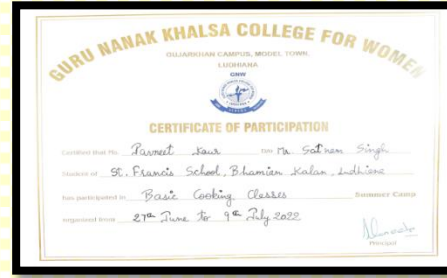 GURU NANAK KHALSA COLLEGE FOR WOMEN
GUJARKHAN CAMPUS, MODEL TOWN
LUDHIANA
GNW
CERTIFICATE OF PARTICIPATION
Certified that Ms. Parneet Kaur D/o Mr Satnam Singh
Student of St. Francis School, Bhamian Kalan, Ludhiana
has participated in Basic Cooking Classes Summer Camp
organised from 27th June to 9th July 2022
Principal